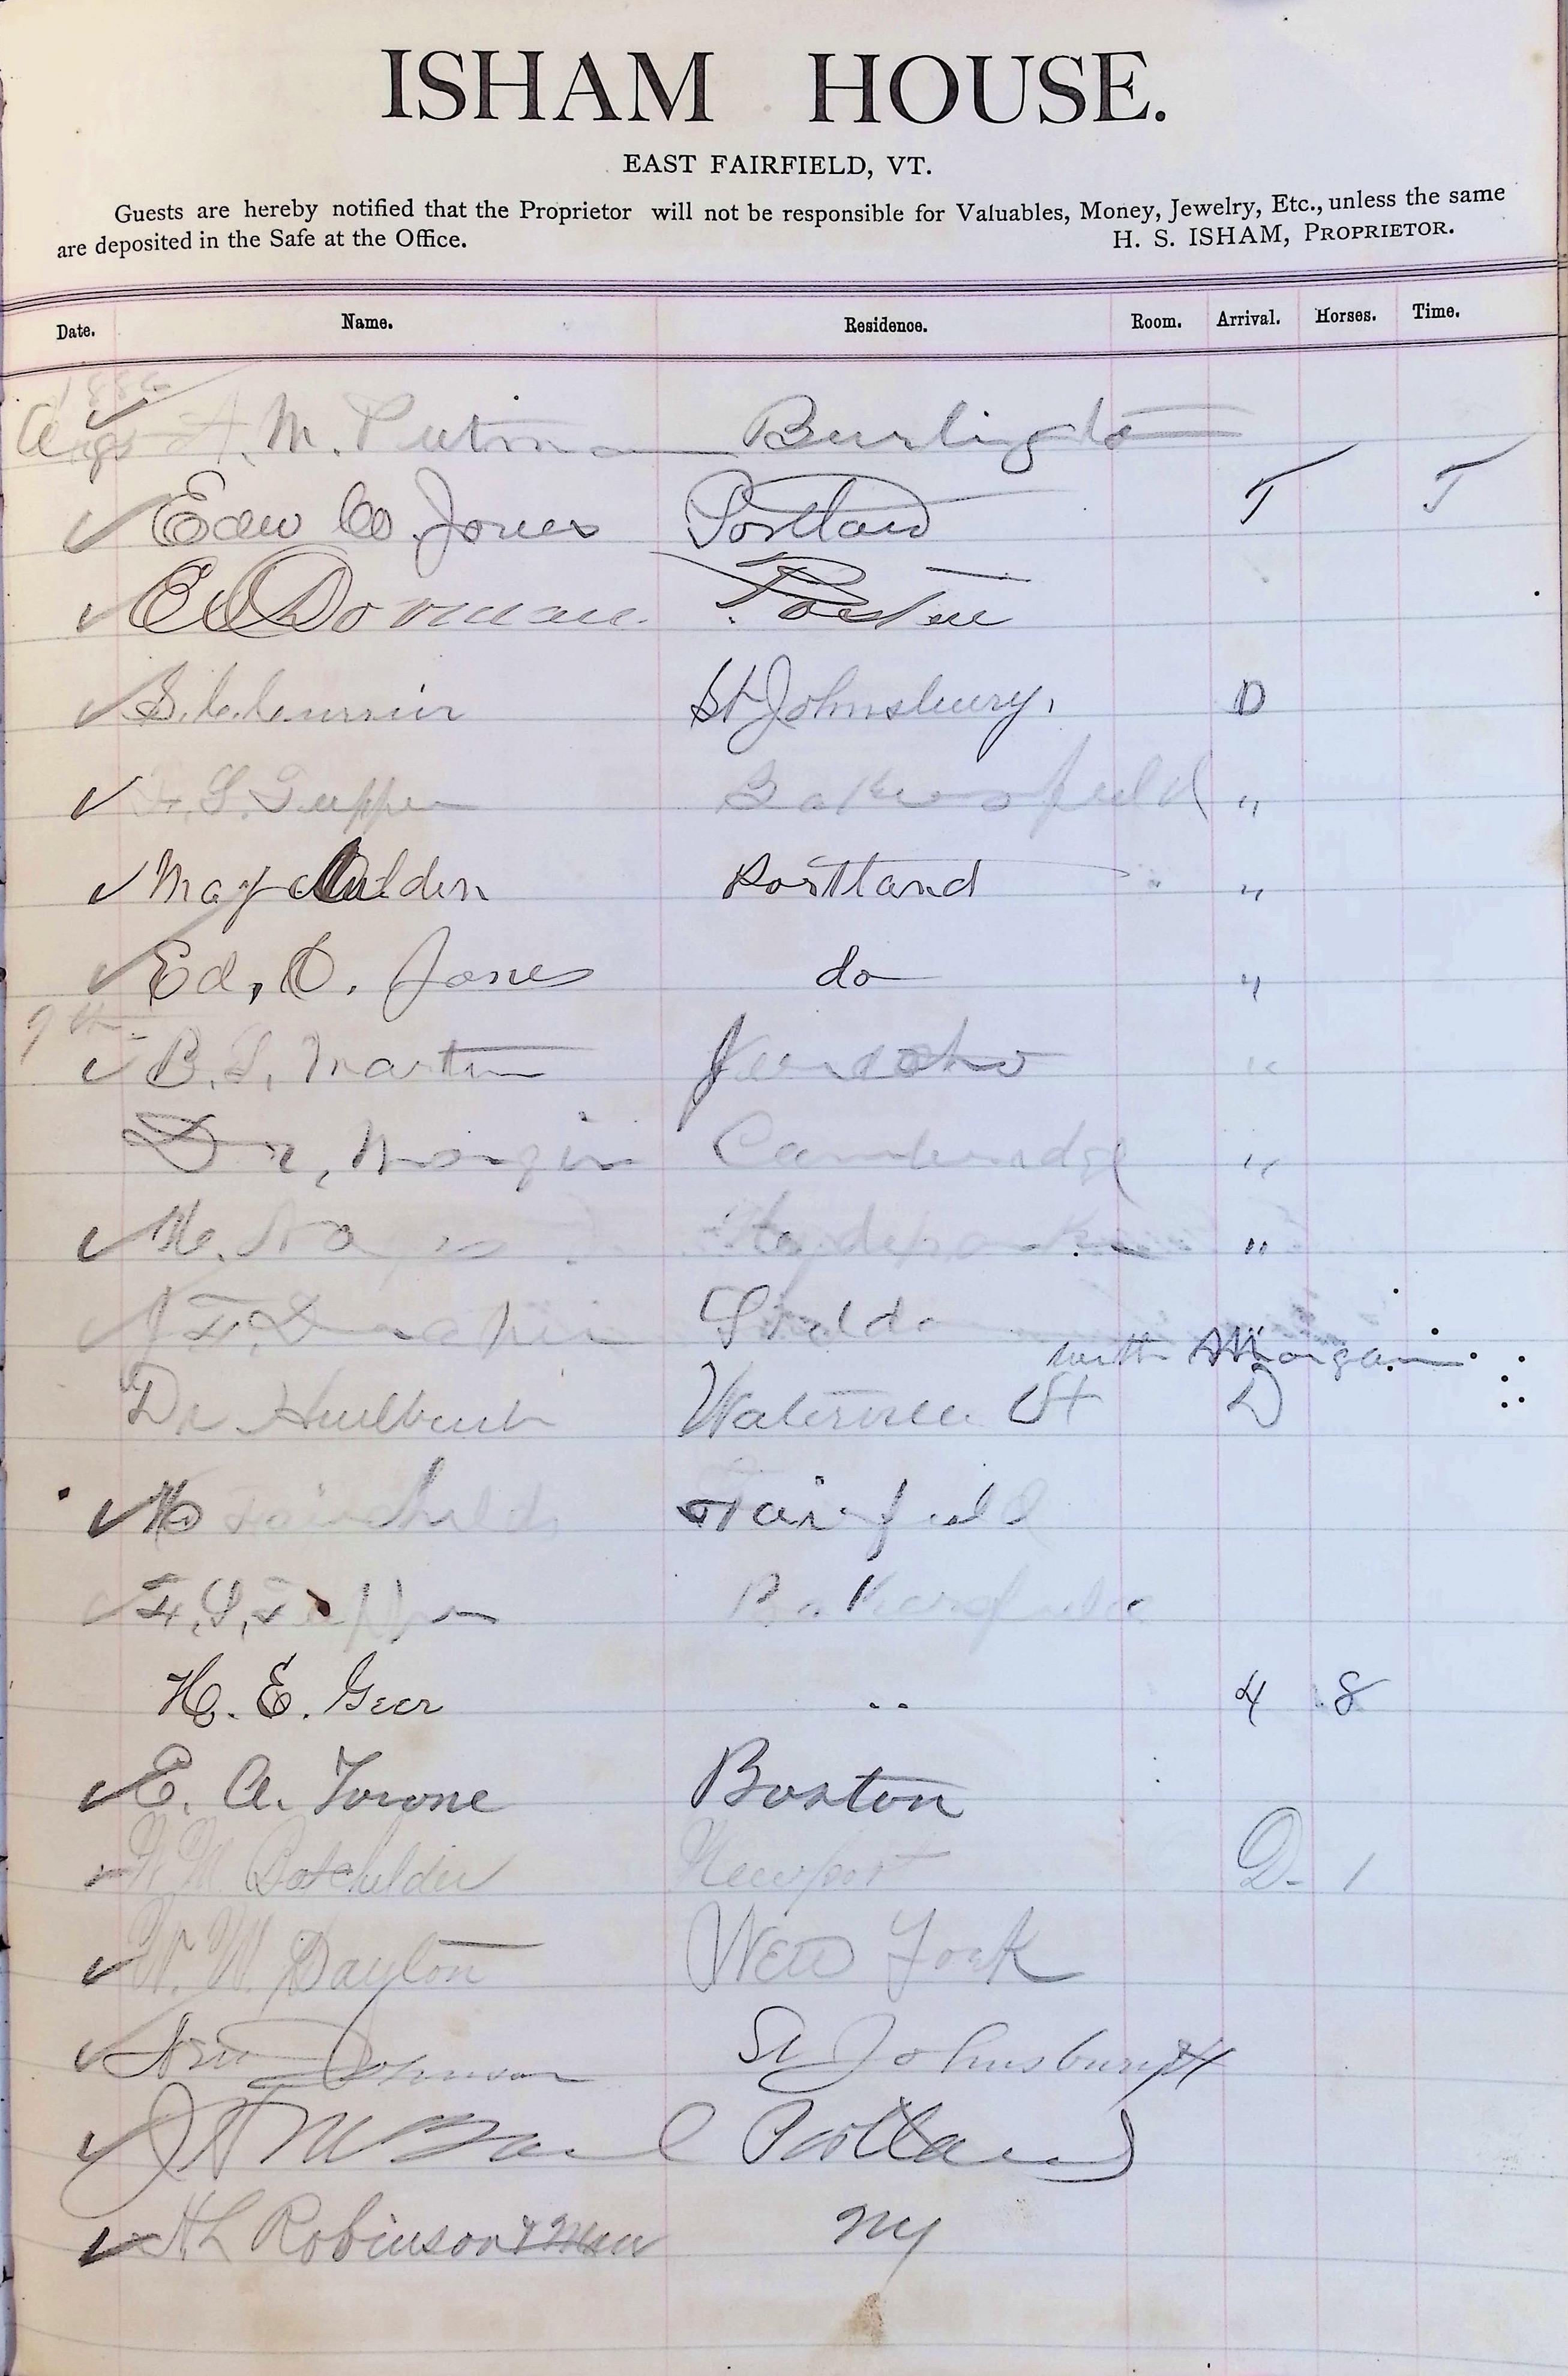 ISHAM HOUSE.
EAST FAIRFIELD, VT.
Guests are hereby notified that the Proprietor will not be responsible for Valuables, Money, Jewelry, Etc., unless the same
are deposited in the Safe at the Office. H. S. ISHAM, PROPRIETOR.
Date. Name. Residence. Room. Arrival. Horses. Time.
1886
A. M. Putnam Burlington
Edw Jones Portland T T
Boston
S. C. Currier St Johnsbury, D
F. S. Tupper Bakersfield "
May Alden Portland "
Ed, O. Jones do "
9th
B. S. Martin Jericho "
Dr, Morgan Cambridge "
Hydepark "
J. F. Draper
with Morgan
Dr Hulburt Waterville Vt D
Fairchilds Fairfield
F. S. Tupper Bakersfield
H. E. Geer " 4 8
E. A. Towne Boston
W. M. Batchelder Newport D- 1
W. W. Dayton New York
Johnson St Johnsbury Vt
Portland
Robinson & NY